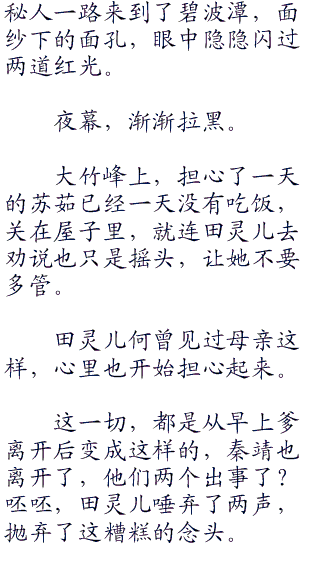 秘人一路来到了碧波潭，面
纱下的面孔，眼中隐隐闪过
两道红光。
夜幕，渐渐拉黑。
大竹峰上，担心了一天
的苏茹已经一天没有吃饭，
关在屋子里，就连田灵儿去
劝说也只是摇头，让她不要
多管。
田灵儿何曾见过母亲这
样，心里也开始担心起来。
这一切，都是从早上爹
离开后变成这样的，秦靖也
离开了，他们两个出事了？
呸呸，田灵儿唾弃了两声，
抛弃了这糟糕的念头。